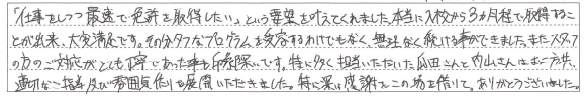 「仕事をしつつ最速で免許を取得したい」という要望を叶えてくれました。本当に入校から3ヵ月程で取得するこ
とが出来、大変満足です。その分タフなプログラムを受容するわけでもなく無理なく続ける事ができました。またスタッフ
の方のご対応がとても丁寧であった事も印象深いです。特に多く担当いただいた 田さんと内山さんはまに方共、
適切なご指導及び雰囲気作りを展開いただきました。特に深い感謝をこの場を借りて。ありがとうございました。